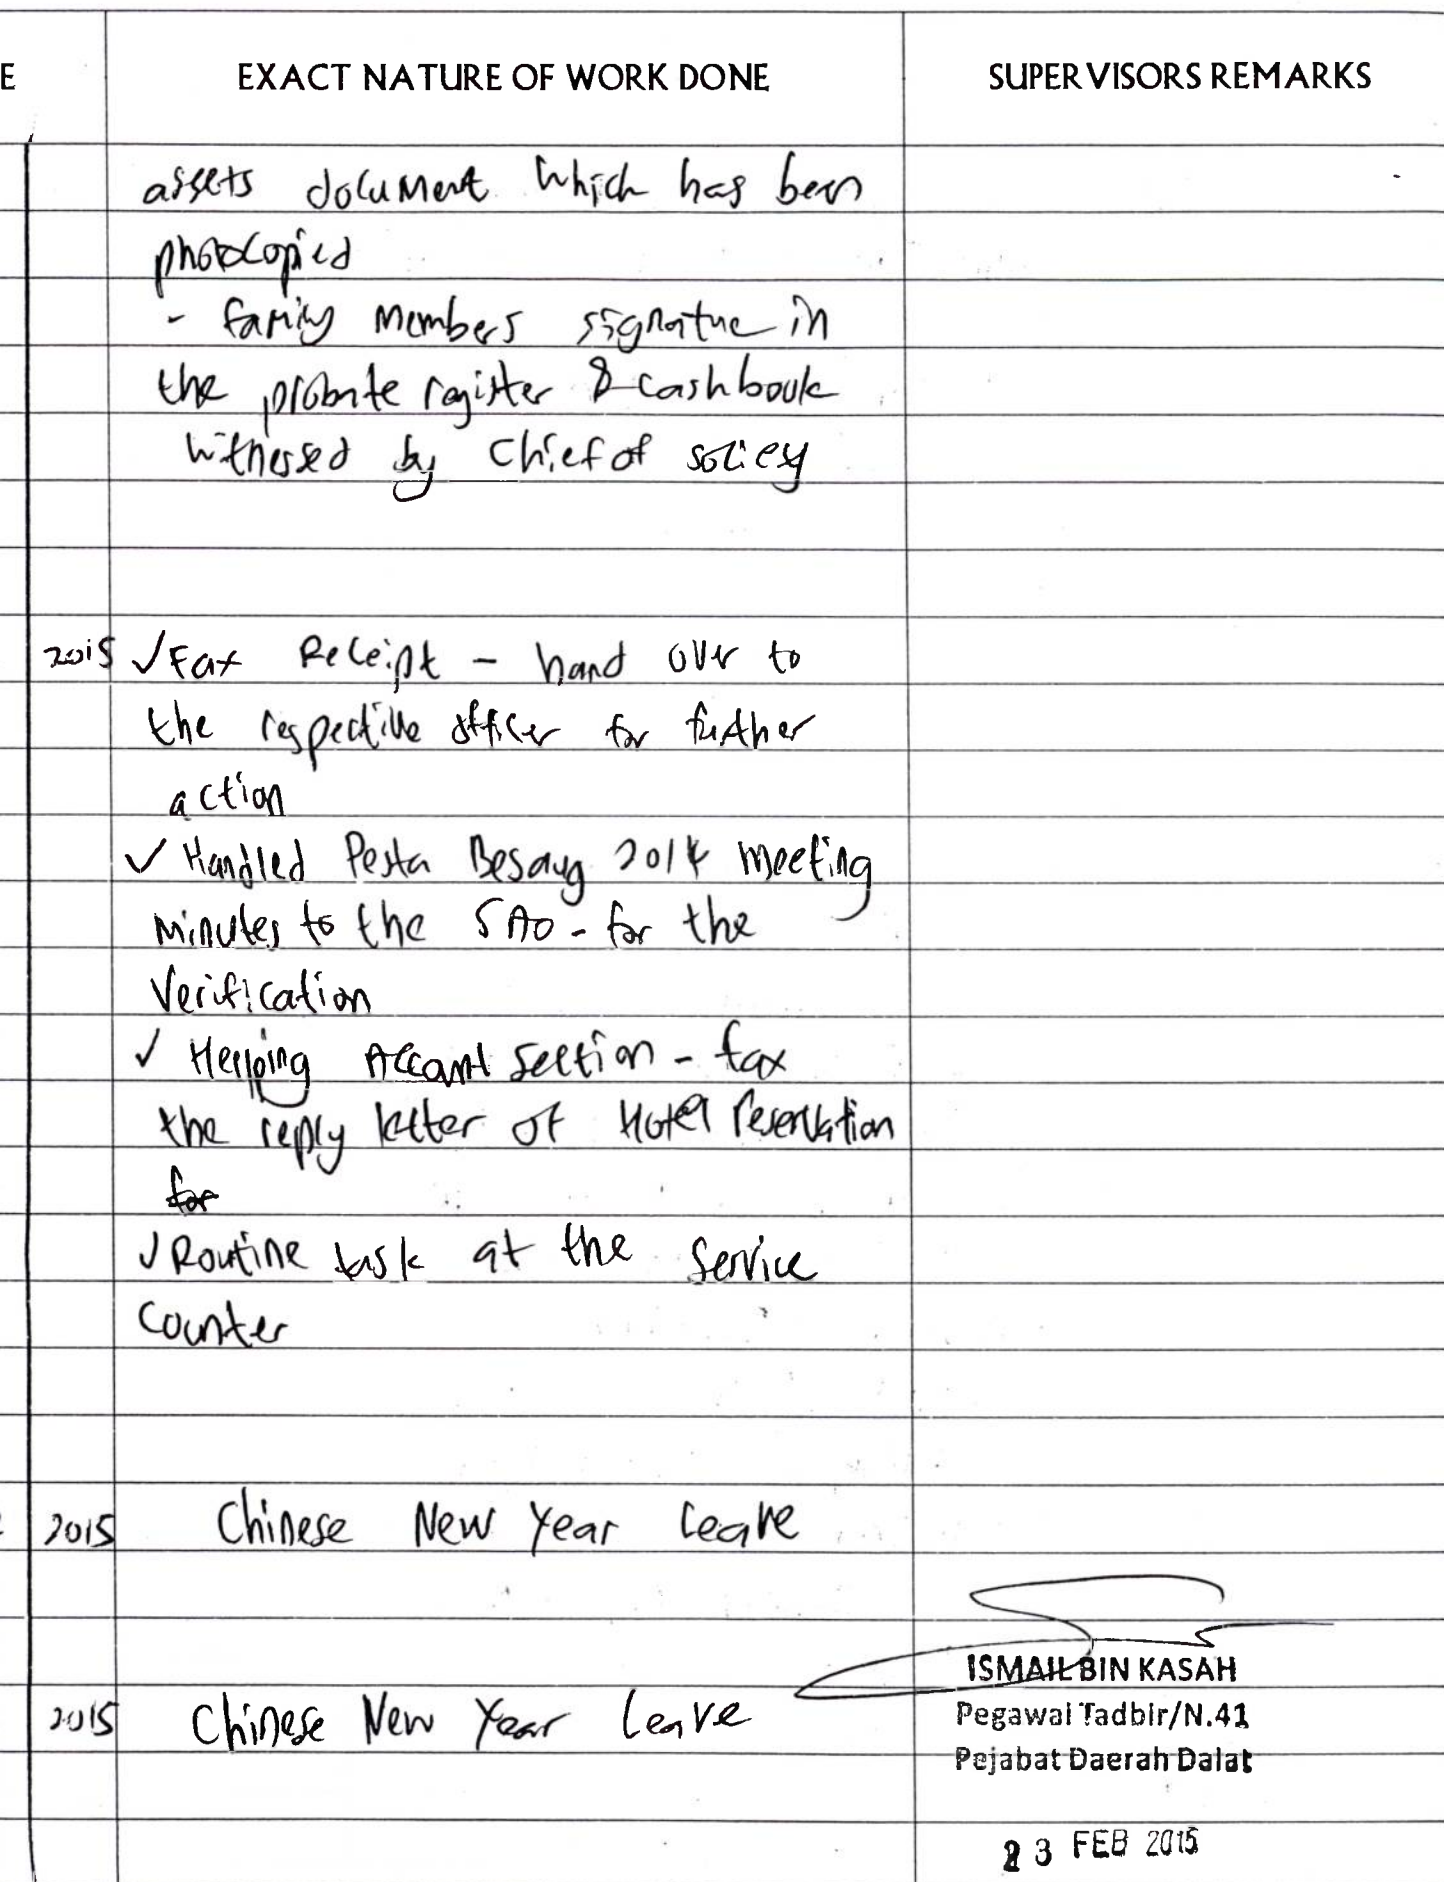 E EXACT NATURE OF WORK DONE SUPERVISORS REMARKS
assets document which has been
photocopied
- family members signatue in
the probate register & cashbook
witnessed by Chief of
2015 ✓ Fax Receipt - hand over to
the respective officer for further
action
✓ Handled Pesta 2014 meeting
minutes to the SAO - for the
Verification
✓ Helping Account Section - fax
the reply letter of Hotel reservation
for
✓ Routine task at the Service
Counter
2015 Chinese New Year leave
ISMAIL BIN KASAH
2015 Chinese New Year leave Pegawai Tadbir/N.41
Pejabat Daerah Dalat
23 FEB 2015